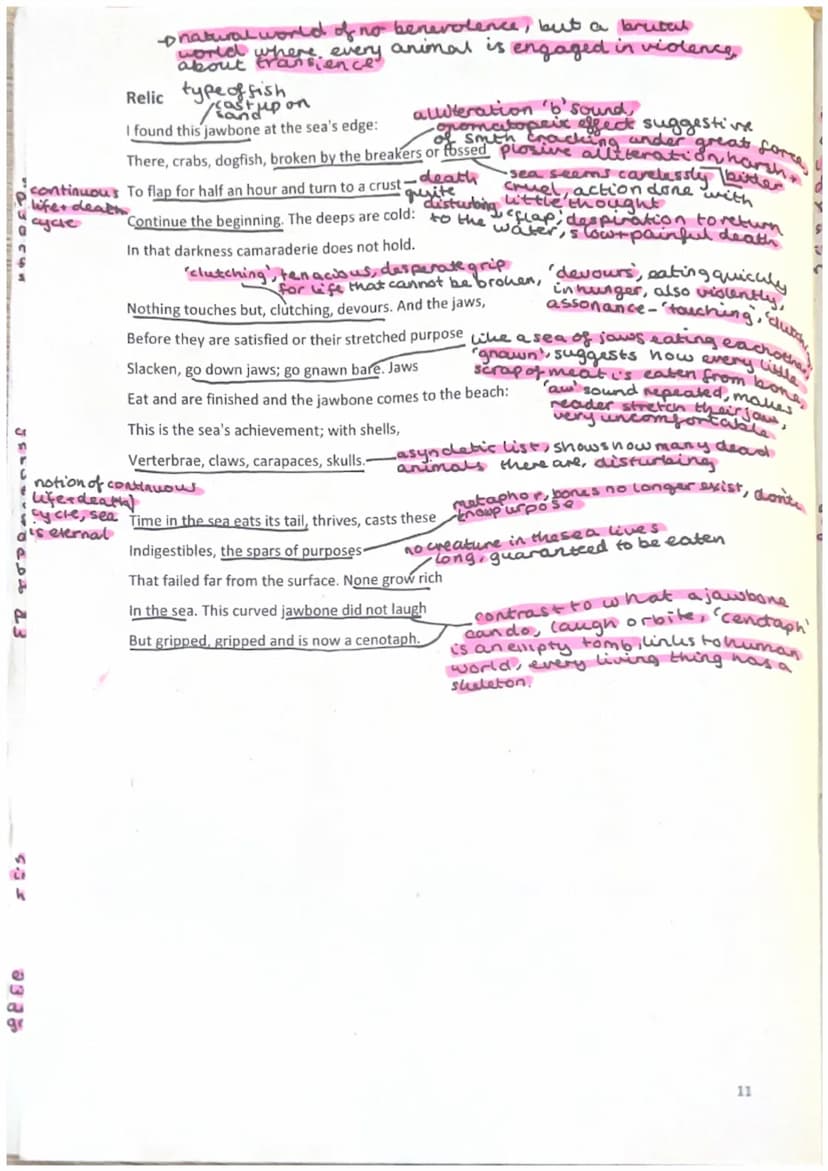 → natural world of no benevolence, but a brutal
world where every animal is engaged in violence,
about transience
Relic
type of fish
cast up on
sand
I found this jawbone at the sea's edge:
alliteration 'b' sound,
onomatopoeic effect suggestive
of smth cracking under great force,
plosive alliteration, harsh +
bitter
There, crabs, dogfish, broken by the breakers or tossed
sea seems carelessly
cruel, action done with
little thought
To flap for half an hour and turn to a crust
death
quite
disturbing
continuous
life + death
cycle
Continue the beginning. The deeps are cold:
'flap', despiration to return
to the water, slow + painful death
In that darkness camaraderie does not hold.
'clutching', tenacious, desperate grip
for life that cannot be broken,
'devours', eating quickly
in hunger, also violently,
assonance - 'touching', 'clutch
Nothing touches but, clutching, devours. And the jaws,
Before they are satisfied or their stretched purpose
like a sea of jaws eating eachother,
'gnawn', suggests how every little
scrap of meat is eaten from bone,
Slacken, go down jaws; go gnawn bare. Jaws
Eat and are finished and the jawbone comes to the beach:
'aw' sound repeated, makes
reader stretch their jaw,
very uncomfortable
This is the sea's achievement; with shells,
Verterbrae, claws, carapaces, skulls.
asyndetic list, shows how many dead
animals there are, disturbing
notion of continuous
life + death
cycle, sea
is eternal
Time in the sea eats its tail, thrives, casts these
metaphor, bones no longer exist, don't
know purpose
Indigestibles, the spars of purposes
no creature in the sea lives
long, guaranteed to be eaten
That failed far from the surface. None grow rich
In the sea. This curved jawbone did not laugh
But gripped, gripped and is now a cenotaph.
contrast to what a jawbone
can do, laugh or bite, 'cenotaph'
is an empty tomb, links to human
world, every living thing has a
skeleton.
11